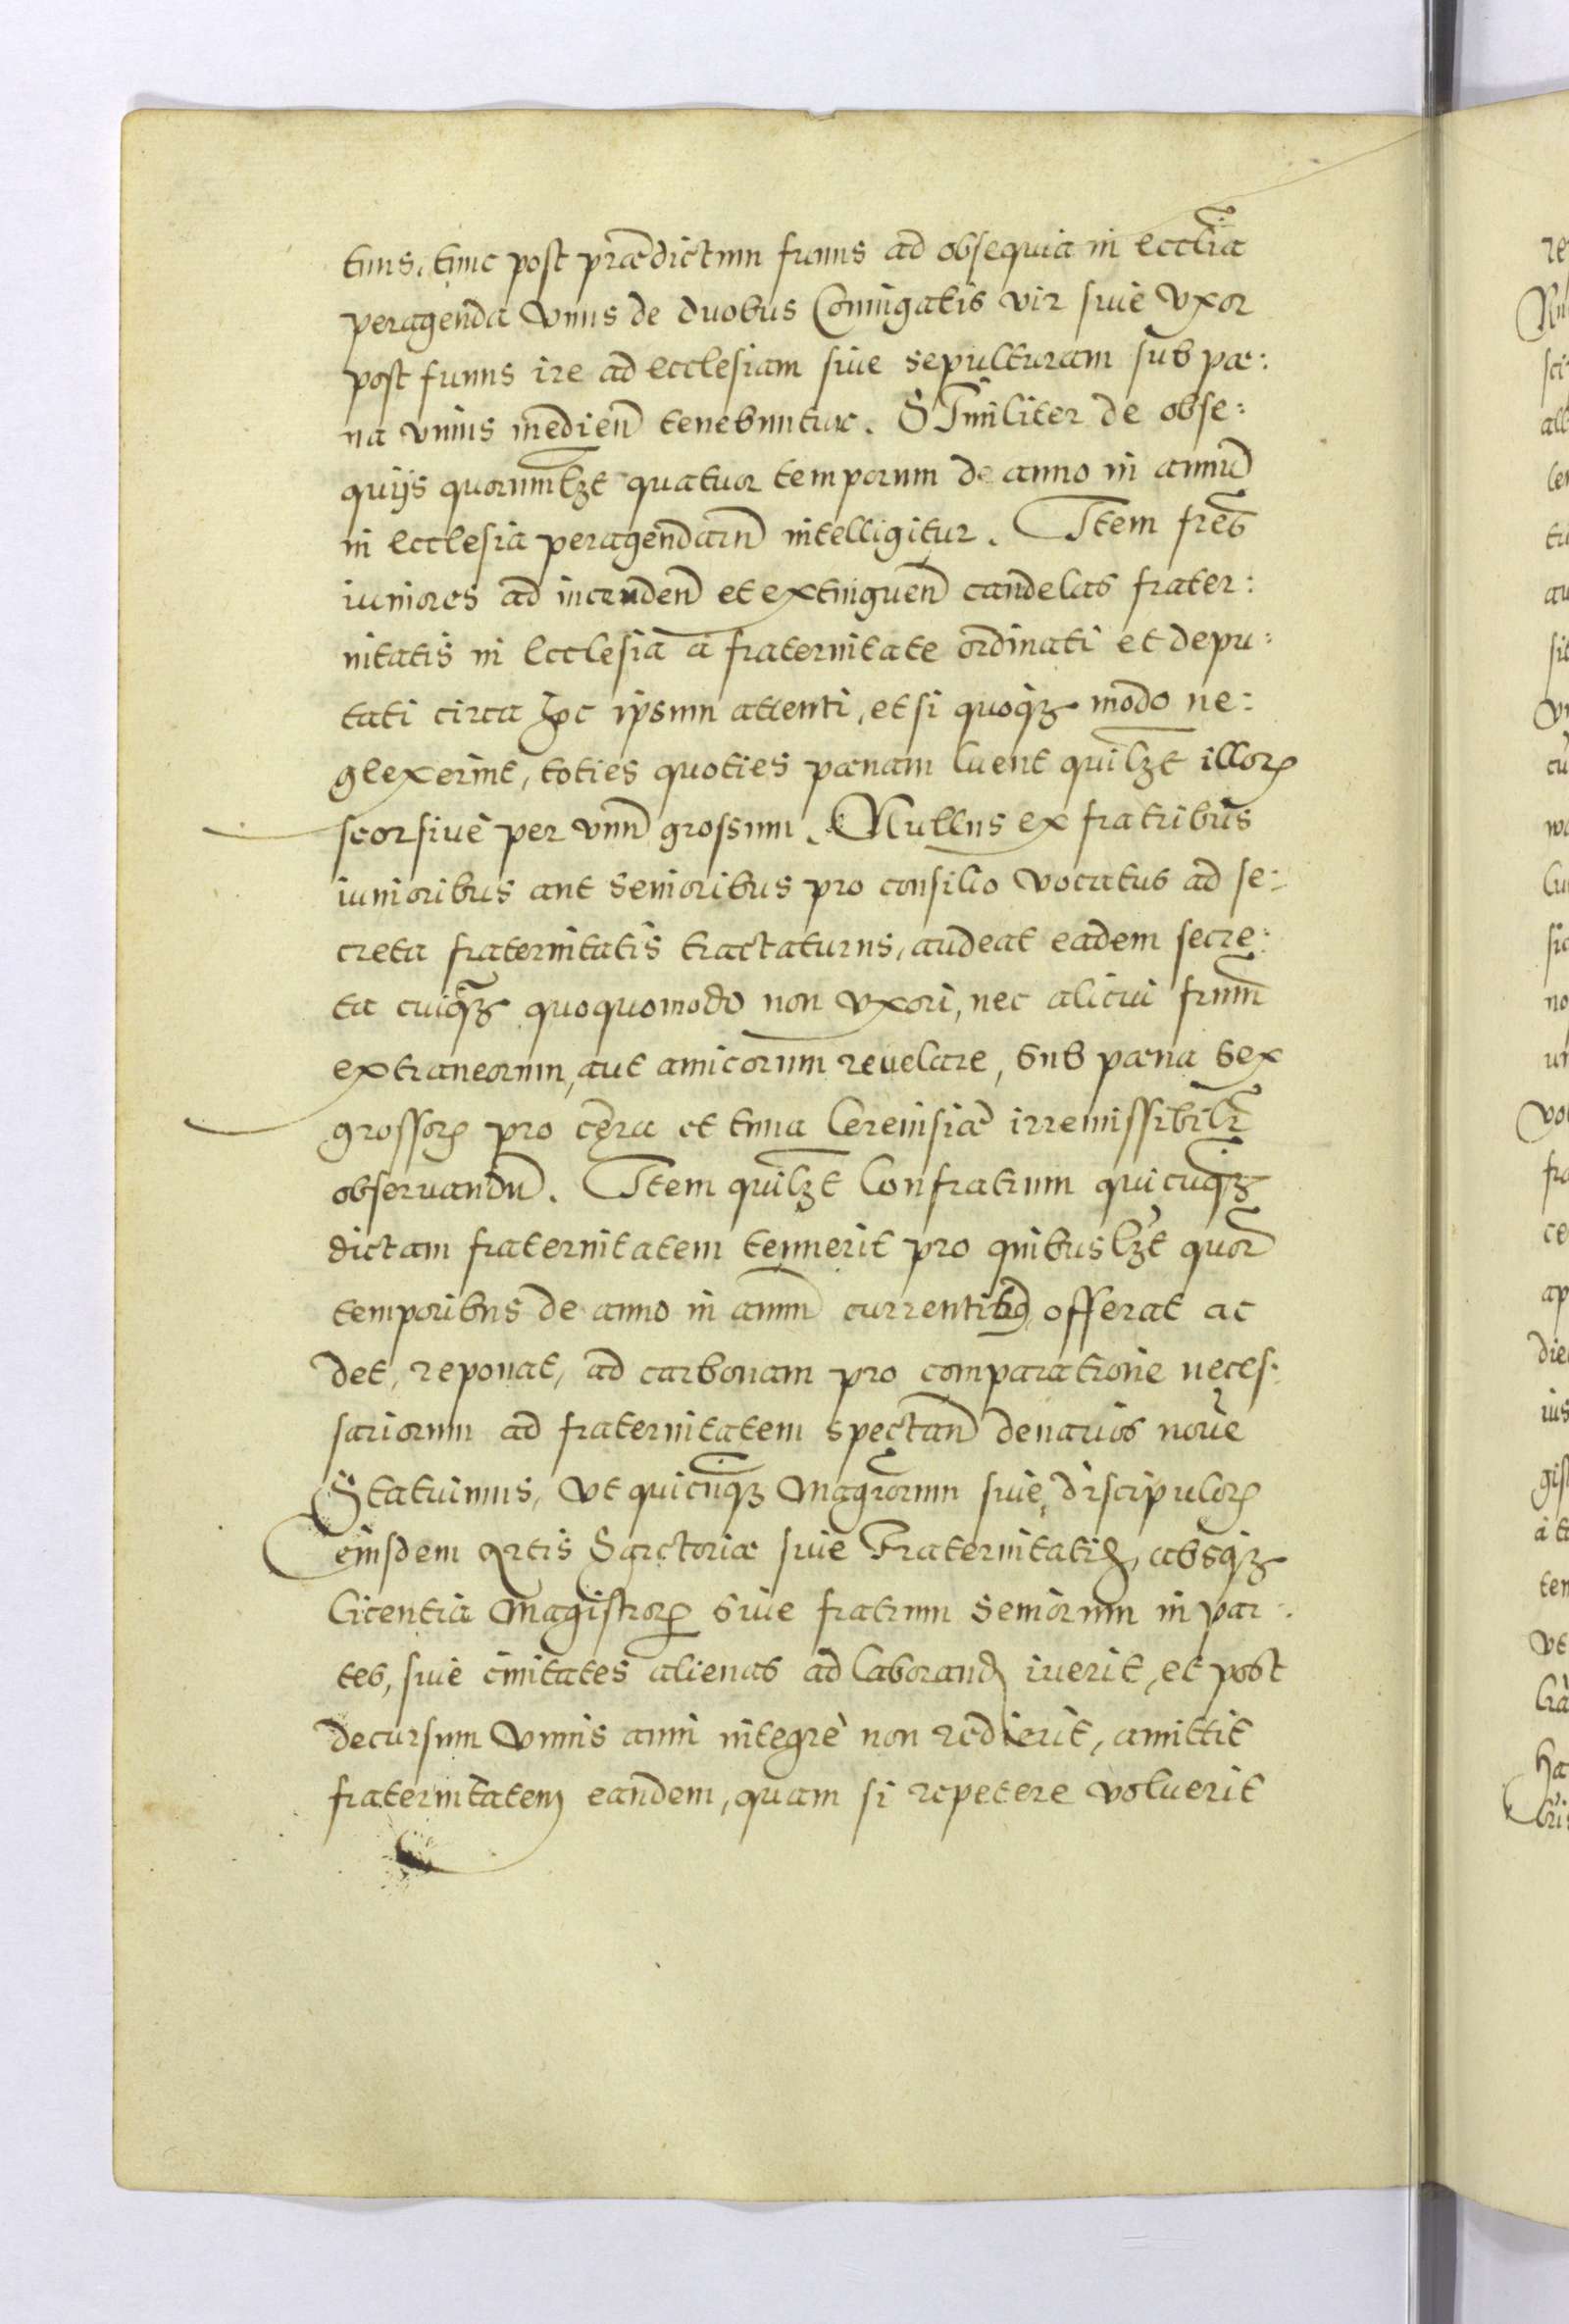 tuus, tunc post prædictum funus ad obsequia in ecclīa
peragenda vnus de duobus Coniugatis vir siue vxor
post funus ire ad ecclesiam siue sepulturam sub pæ:
na vnius medien̄ tenebuntur. SImiliter de obse:
quijs quorumlʒt quatuor temporum de anno in annū
in ecclesia peragendarū intelligitur. Item frēs
iuniores ad incendēn et extinguen̄ candelas frater:
nitatis in Ecclesia a fraternitate ordinati et depu:
tati circa hoc ipsum attenti, et si quoqʒ modo ne:
glexerint, toties quoties pænam luent quilʒt illorꝝ
seorsiue per vnū grossum. Nullus ex fratribus
iunioribus aut senioribus pro consilio vocatus ad se:
creta fraternitatis tractaturus, audeat eadem secre:
ta cuiqʒ quoquomodo non vxori, nec alicui frūm
extraneorum, aut amicorum reuelare, sub pæna sex
grossorꝝ pro cera et tuna Cereuisiæ irremissibilī
obseruandū. Item quilʒt Confratrum quicūqʒ
dictam fraternitatem tenuerit pro quibuslʒt quor̄
temporibus de anno in annū currentibꝰ offerat ac
det, reponat, ad carbonam pro comparatione neces:
sariorum ad fraternitatem spectan̄ denarios noue
Statuimus, vt quicūqʒ Magr̄orum siue discipulorꝝ
eiusdem Artis Sarctoriæ siue Fraternitatis, absqʒ
licentia Magistrorꝝ siue fratrum Seniorum in par:
tes, siue ciuitates alienas ad laborand iuerit, et post
decursum vnius anni integrè non redierit, amittit
fraternitatem eandem, quam si repetere voluerit